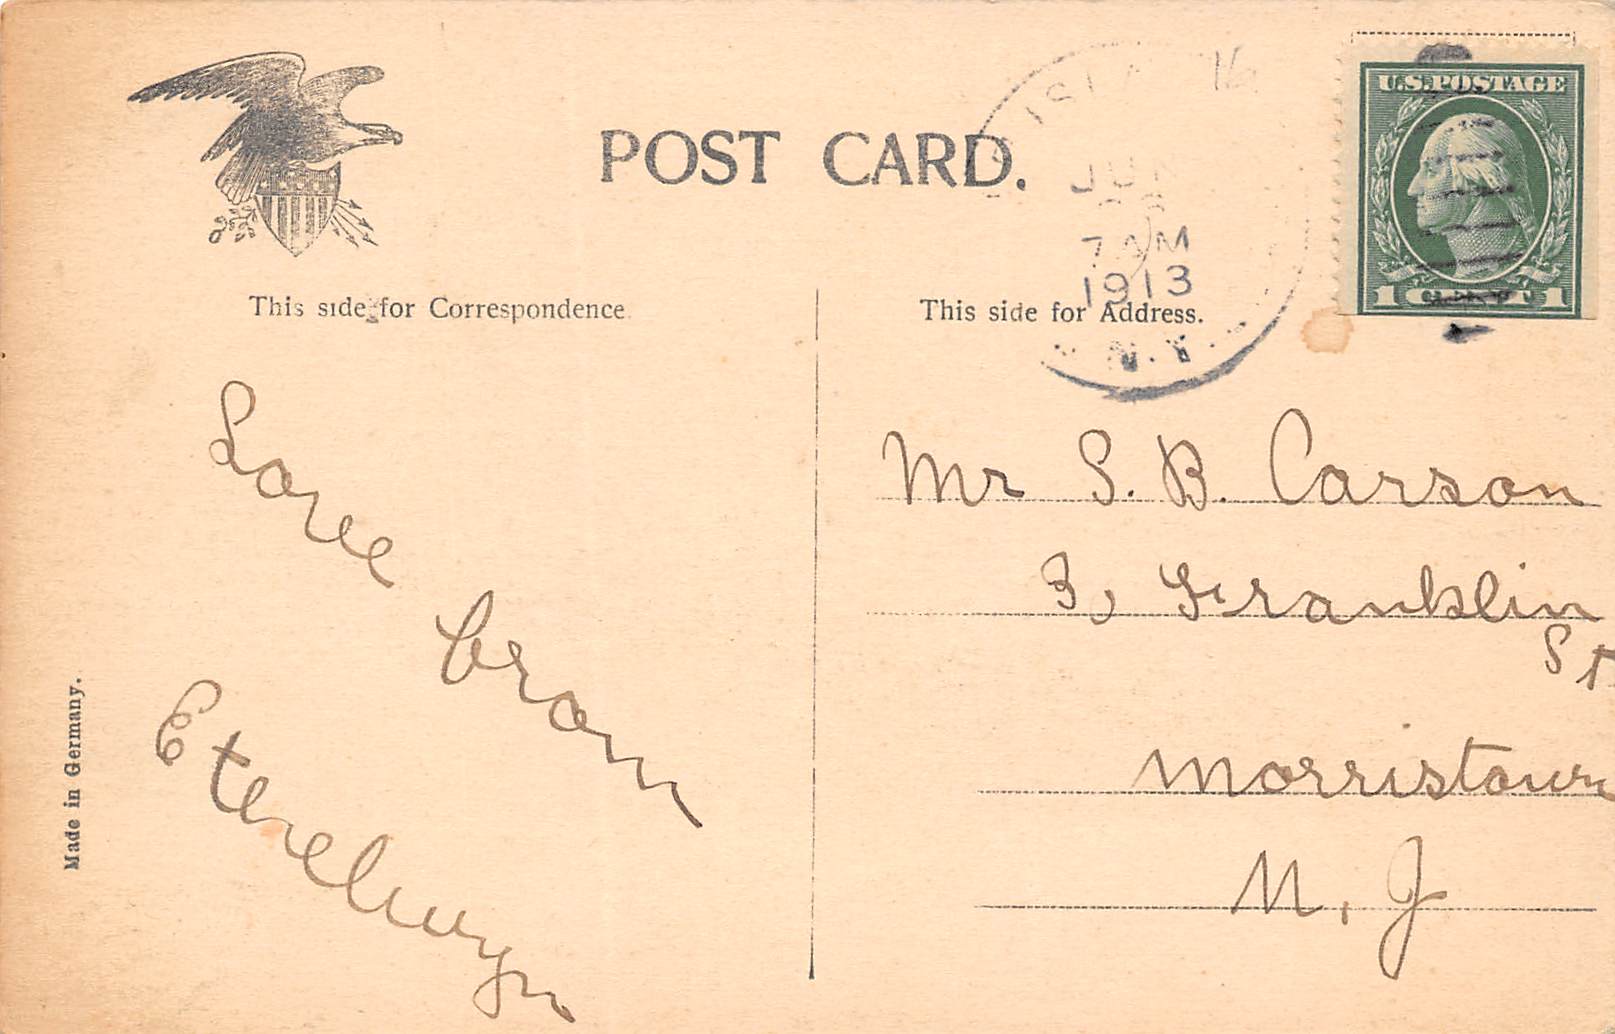 POST CARD.
U.S. POSTAGE
1 CENT 1
JUN
7 AM
1913
N.Y.
This side for Correspondence
This side for Address.
Love from
Etherlwyn
Mr S. B. Carson
3, Franklin
St.
Morristown
N. J
Made in Germany.